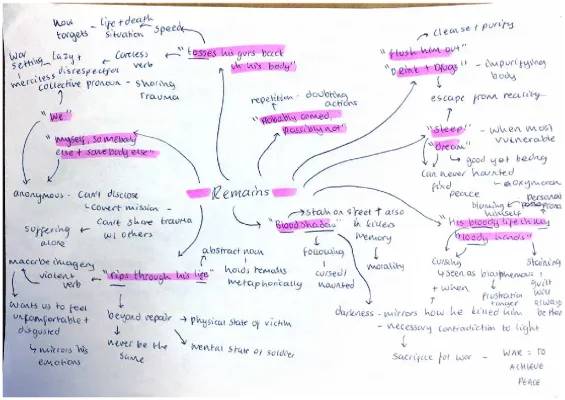 how targets - life + death situation
speed
"tosses his guts back in his body"
war setting
lazy + disrespectful
careless verb
merciless
collective pronoun - sharing trauma
"We"
"myself, somebody else + somebody else"
anonymous - can't disclose
covert mission -
can't share trauma w/ others
suffering alone
macabre imagery
violent verb
"rips through his life"
abstract noun
holds remains metaphorically
wants us to feel uncomfortable + disgusted
↳ mirrors his emotions
beyond repair → physical state of victim
never be the same
mental state of soldier
Remains
repetition - doubting actions
"Probably armed, possibly not"
cleanse + purify
"flush him out"
"Drink + Drugs" - impurifying body
escape from reality
"sleep" - when most vulnerable
"dream"
good yet being
oxymoron
can never find peace
haunted
"Blood shadow"
stain on street + also in killers memory
following
cursed/haunted
morality
blaming himself
personal
"his bloody life in my bloody hands"
cursing
seen as blasphemous
+ when
frustration + anger
staining
guilt will always be there
darkness - mirrors how he killed him
- necessary contradiction to light
sacrifice for war - WAR = TO ACHIEVE PEACE